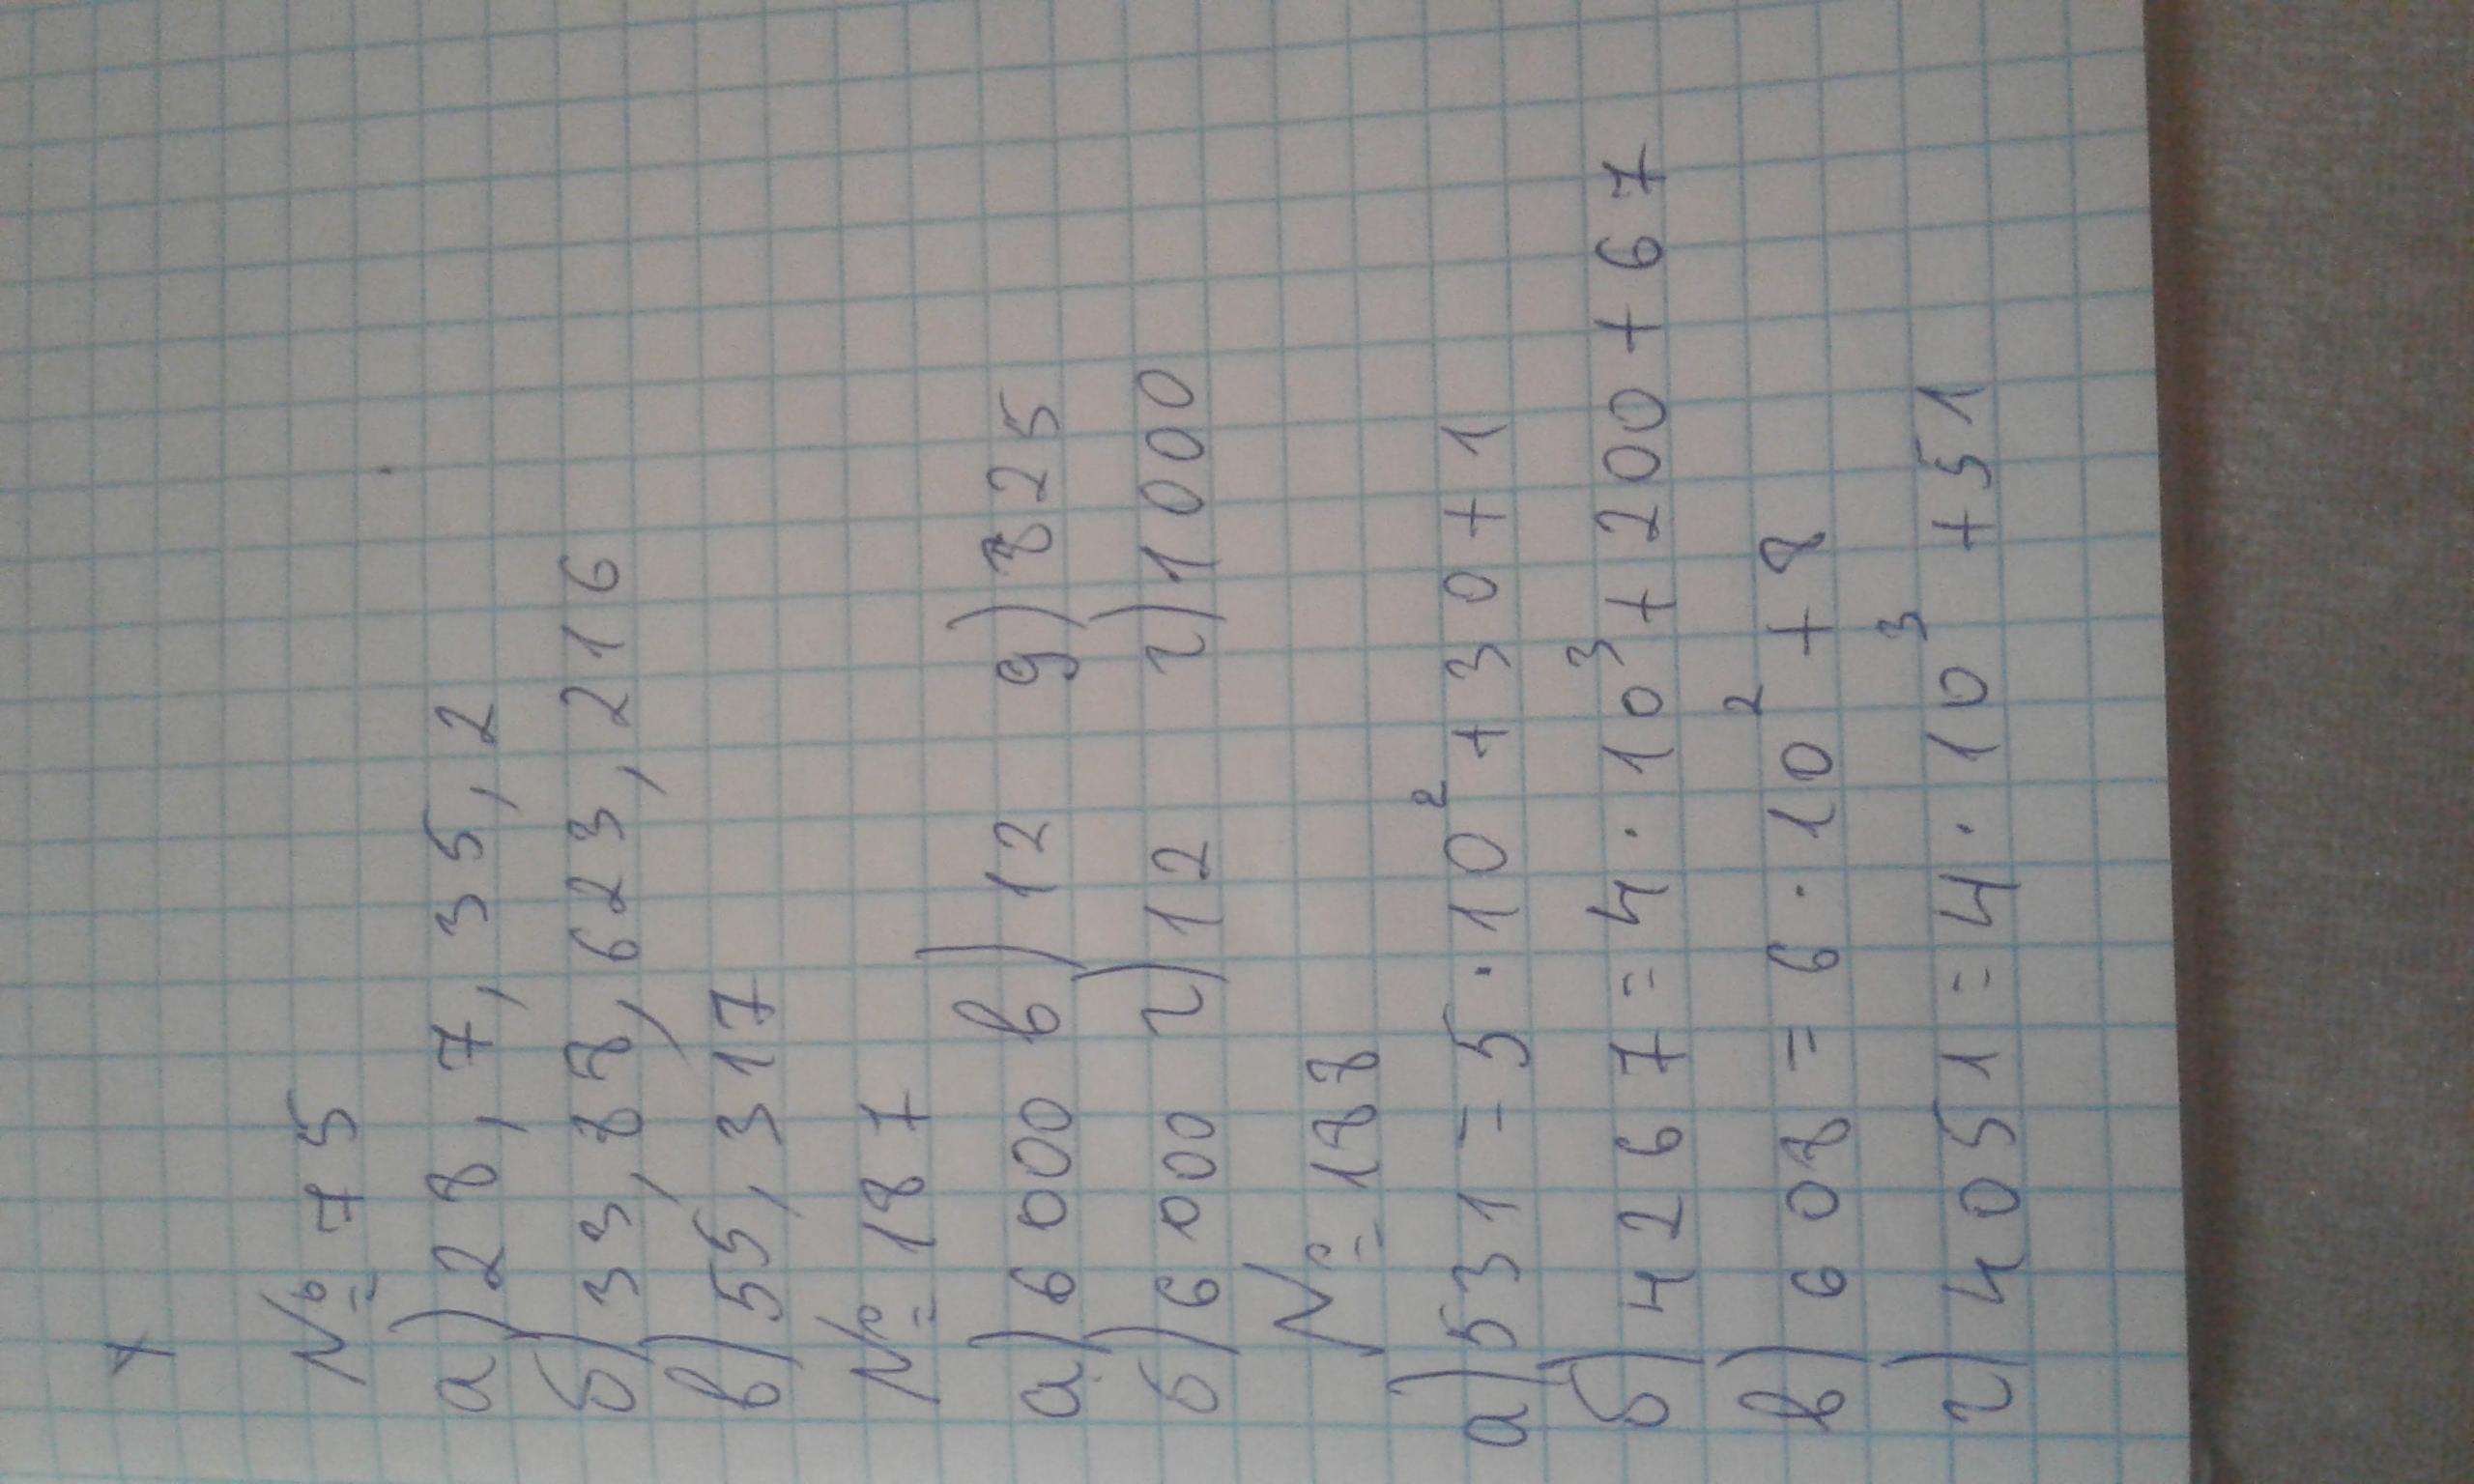 +
№ 75
а) 28, 7, 35, 2
б) 33, 88, 623, 216
в) 55, 317
№ 187
а) 6000 в) 12 д) 825
б) 6000 г) 12 г) 1000
№ 188
а) 531 = 5 · 10² + 30 + 1
б) 4267 = 4 · 10³ + 200 + 67
в) 608 = 6 · 10² + 8
г) 4051 = 4 · 10³ + 51